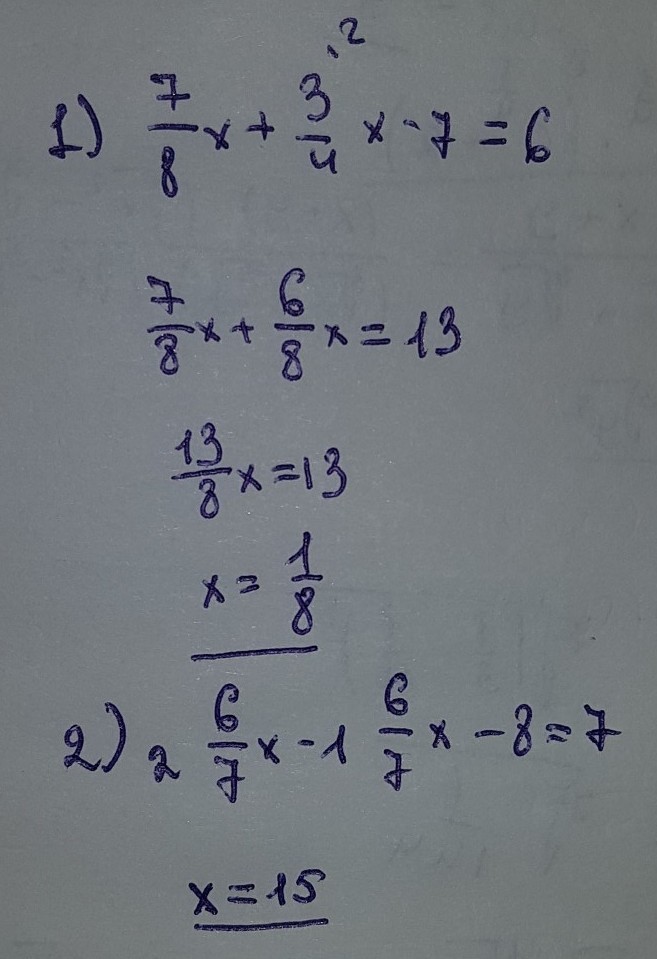 1) 7/8 x + 3/4 ·2 x - 7 = 6
7/8 x + 6/8 x = 13
13/8 x = 13
x = 1/8
2) 2 6/7 x - 1 6/7 x - 8 = 7
x = 15